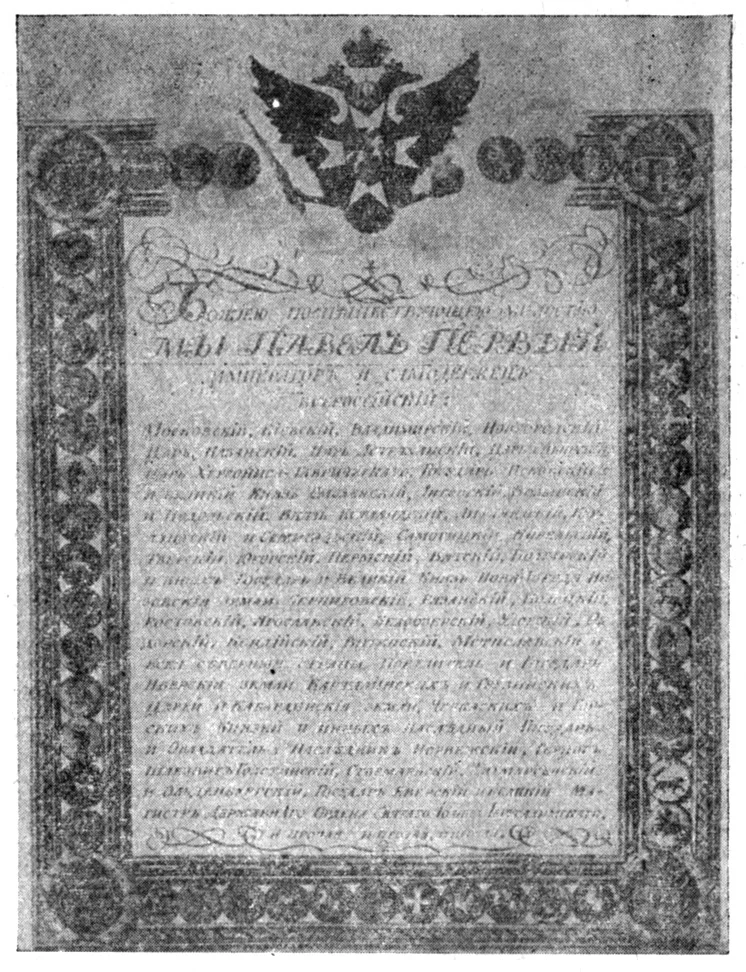 Божиею поспѣшествующею милостію
МЫ ПАВЕЛЪ ПЕРВЫЙ
ИМПЕРАТОРЪ И САМОДЕРЖЕЦЪ
ВСЕРОССІЙСКІЙ:
Московскій, Кіевскій, Владимирскій, Новгородскій
Царь Казанскій, Царь Астраханскій, Царь Сибирскій
Царь Херсониса-Таврическаго, Государь Псковскій
и Великій Князь Смоленскій, Литовскій, Волынскій
и Подольскій, Князь Естляндскій, Лифляндскій, Кур-
ляндскій и Семигальскій, Самогицкій, Корельскій,
Тверскій, Югорскій, Пермскій, Вятскій, Болгарскій
и иныхъ Государь и Великій Князь Нова города Ни-
зовскія земли, Черниговскій, Рязанскій, Полоцкій,
Ростовскій, Ярославскій, Белоозерскій, Удорскій, Об-
дорскій, Кондійскій, Витепскій, Мстиславскій и
всея северныя страны Повелитель и Государь
Иверскія земли Карталинскихъ и Грузинскихъ
Царей и Кабардинскія земли, Черкаскихъ и Гор-
скихъ Князей и иныхъ Наслѣдный Государь
и Обладатель: Наслѣдникъ Норвежскій, Герцогъ
Шлезвигъ Голстинскій, Стормарнскій, Дитмарсенскій
и Олденбургскій, Государь Еверскій и Великій Ма-
гистръ Державнаго Ордена Святаго Іоанна Іерусалимскаго,
и прочая, и прочая, и прочая.